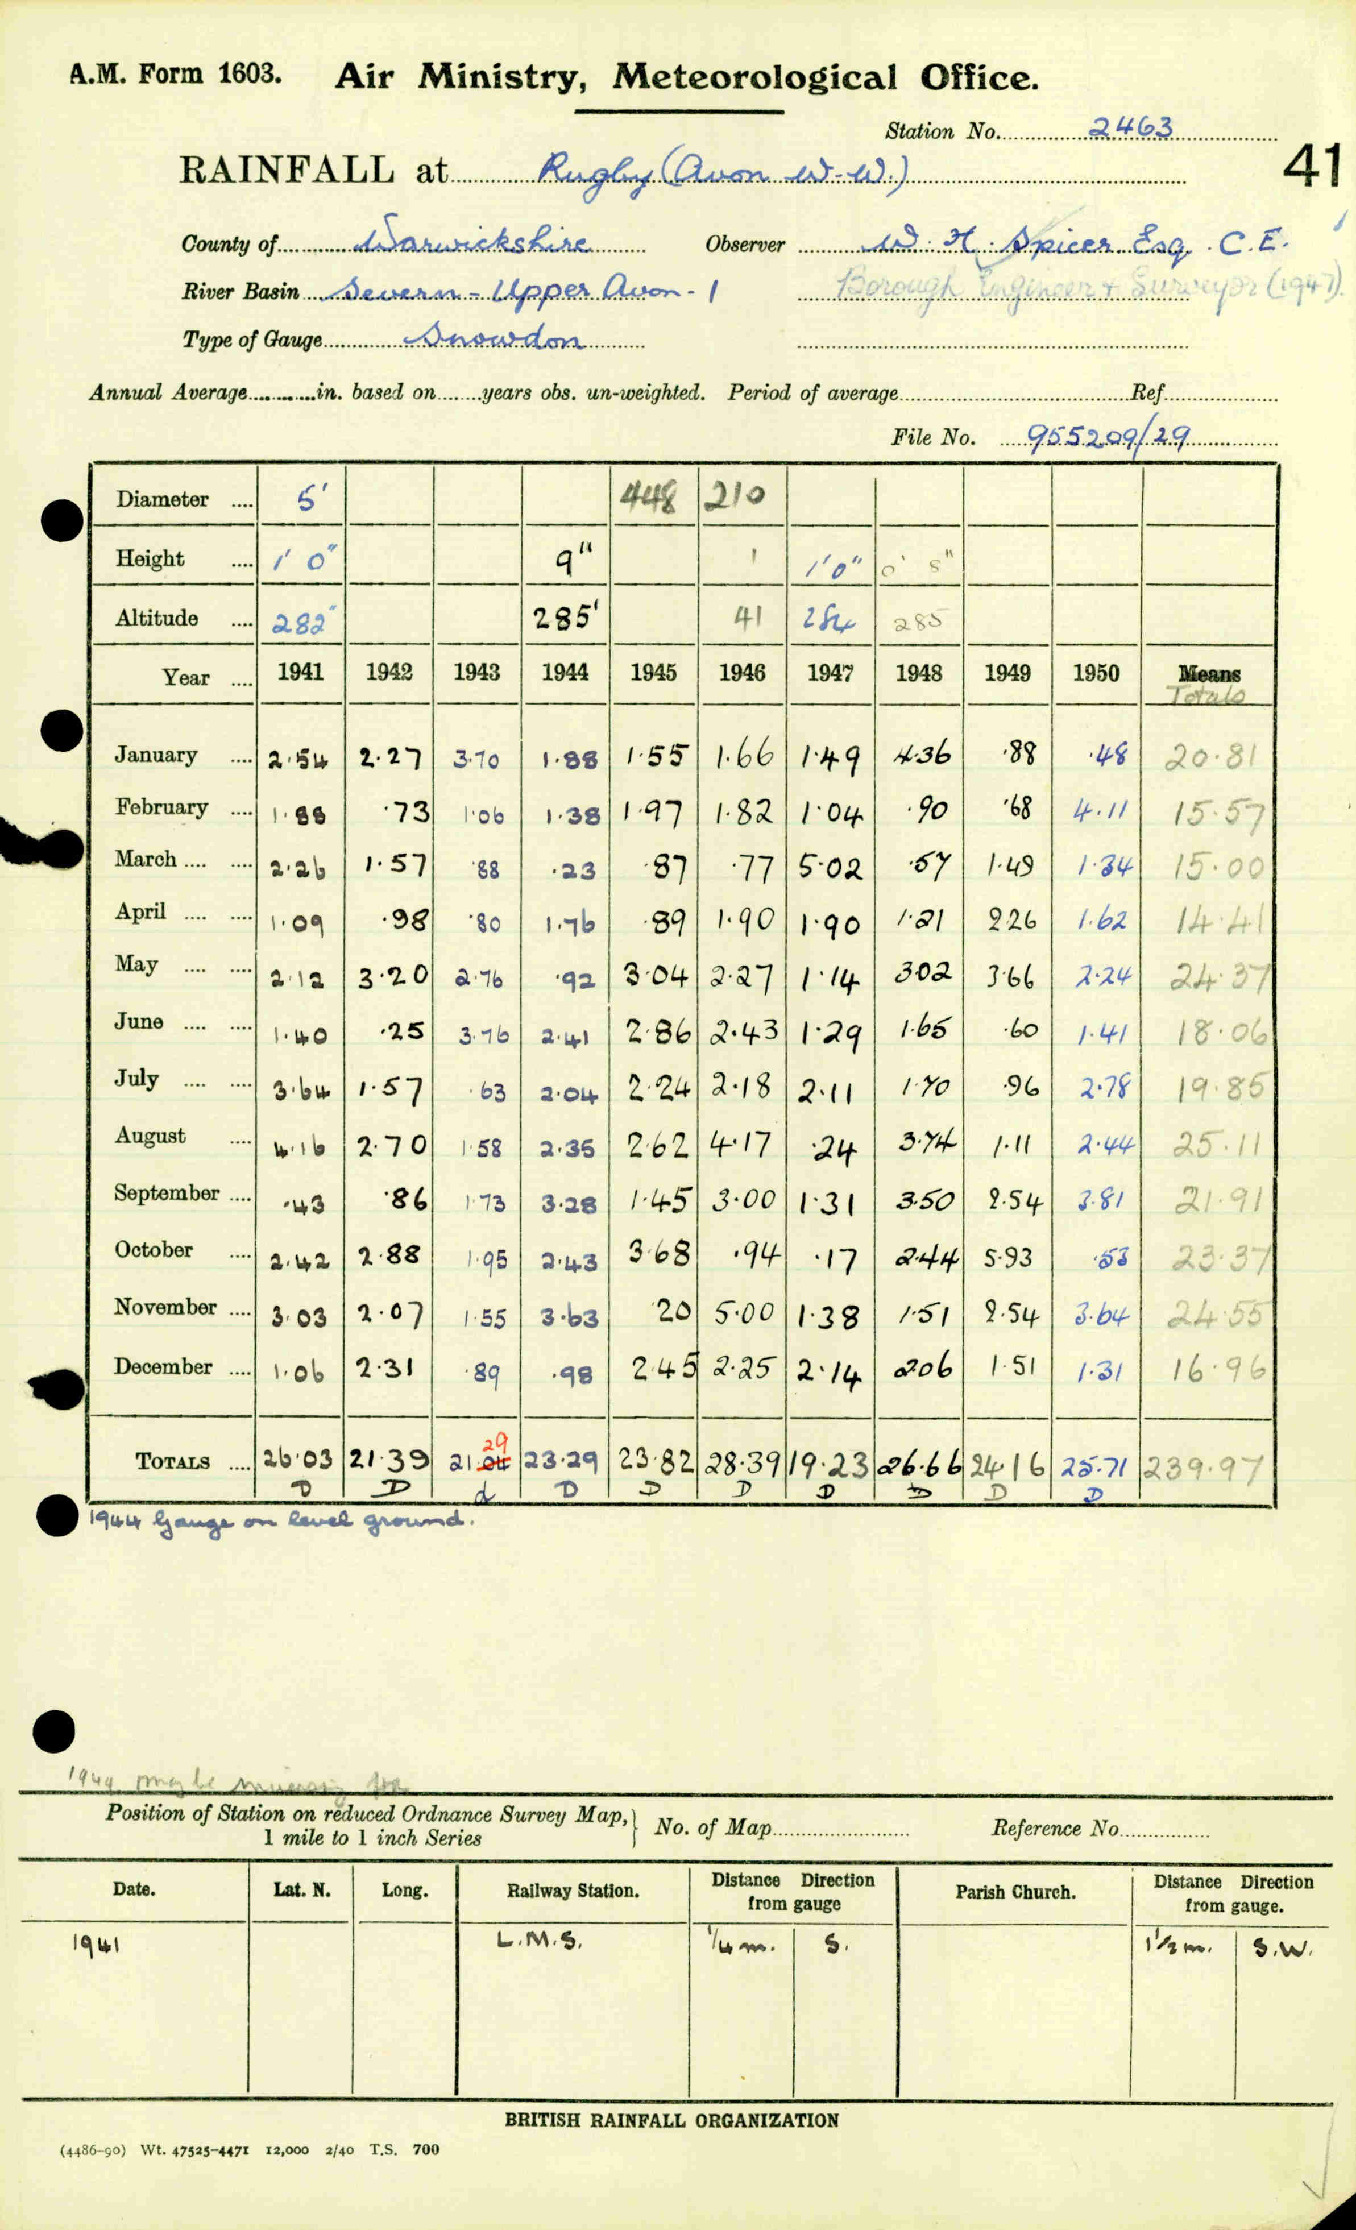 A.M. Form 1603. Air Ministry, Meteorological Office.
Station No. 2463
RAINFALL at Rugby (Avon W.W.) 41
County of Warwickshire Observer W. H. Spicer Esq. C.E.
River Basin Severn - Upper Avon - 1 Borough Engineer & Surveyor (1947).
Type of Gauge Snowdon
Annual Average in. based on years obs. un-weighted. Period of average Ref.
File No. 955209/29
Diameter 5' 448 210
Height 1' 0" 9" 1 1'0" 0' 8"
Altitude 282' 285' 41 284 285
Year 1941 1942 1943 1944 1945 1946 1947 1948 1949 1950 Means
Totals
January 2.54 2.27 3.70 1.88 1.55 1.66 1.49 4.36 .88 .48 20.81
February 1.88 .73 1.06 1.38 1.97 1.82 1.04 .90 .68 4.11 15.57
March 2.26 1.57 .88 .23 .87 .77 5.02 .57 1.49 1.34 15.00
April 1.09 .98 .80 1.76 .89 1.90 1.90 1.21 2.26 1.62 14.41
May 2.12 3.20 2.76 .92 3.04 2.27 1.14 3.02 3.66 2.24 24.37
June 1.40 .25 3.76 2.41 2.86 2.43 1.29 1.65 .60 1.41 18.06
July 3.64 1.57 .63 2.04 2.24 2.18 2.11 1.70 .96 2.78 19.85
August 4.16 2.70 1.58 2.35 2.62 4.17 .24 3.74 1.11 2.44 25.11
September .43 .86 1.73 3.28 1.45 3.00 1.31 3.50 2.54 3.81 21.91
October 2.42 2.88 1.95 2.43 3.68 .94 .17 2.44 5.93 .53 23.37
November 3.03 2.07 1.55 3.63 .20 5.00 1.38 1.51 2.54 3.64 24.55
December 1.06 2.31 .89 .98 2.45 2.25 2.14 2.06 1.51 1.31 16.96
29
TOTALS 26.03 21.39 21.04 23.29 23.82 28.39 19.23 26.66 24.16 25.71 239.97
D D d D D D D D D D
1944 Gauge on level ground.
1949 may be missing
Position of Station on reduced Ordnance Survey Map, No. of Map Reference No.
1 mile to 1 inch Series
Date. Lat. N. Long. Railway Station. Distance Direction from gauge Parish Church. Distance Direction from gauge.
1941 L.M.S. 1/4 m. S. 1 1/2 m. S.W.
BRITISH RAINFALL ORGANIZATION
(4486-90) Wt. 47525-4471 12,000 2/40 T.S. 700